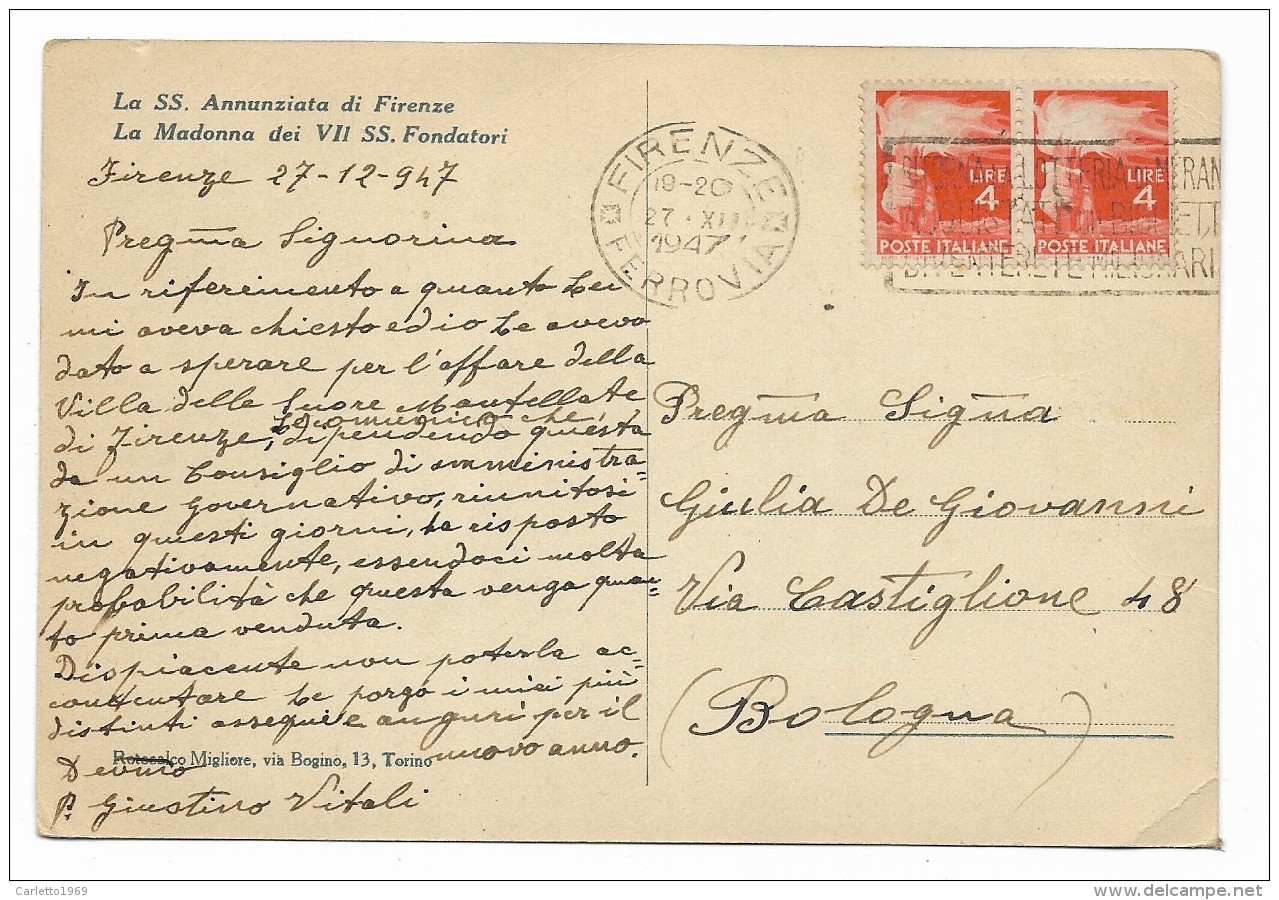 La SS. Annunziata di Firenze
La Madonna dei VII SS. Fondatori
Firenze 27-12-947
Pregma Signorina
In riferimento a quanto Lei
mi aveva chiesto ed io Le avevo
dato a sperare per l'affare della
Villa delle Suore Mantellate
Le comunico che
di Firenze, dipendendo questa
da un Consiglio di amministra=
zione Governativo, riunitosi
in questi giorni, ha risposto
negativamente, essendoci molta
probabilità che questa venga quan=
to prima venduta.
Dispiacente non poterla ac=
contentare Le porgo i miei più
distinti ossequi e auguri per il
nuovo anno.
Rotocalco Migliore, via Bogino, 13, Torino
Devmo
P. Giustino Vitali
FIRENZE
19-20
27 · XII
1947
FERROVIA
LIRE
4
POSTE ITALIANE
LIRE
4
POSTE ITALIANE
LOTTERIA MERAN
Pregma Signa
Giulia De Giovanni
Via Castiglione 48
(Bologna)
Carletto1969
delcampe.net